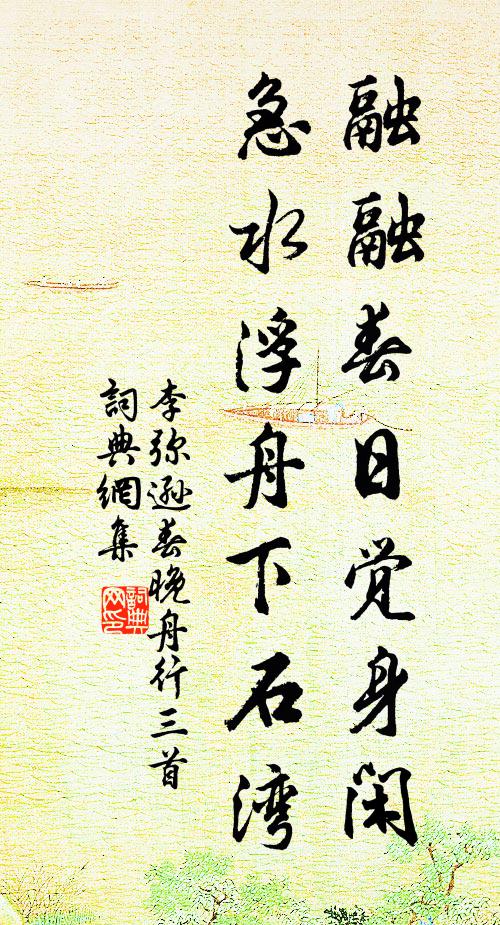 融融春日觉身闲
急水浮舟下石湾
李弥逊春晚舟行三首
詞典網集
詞典网印